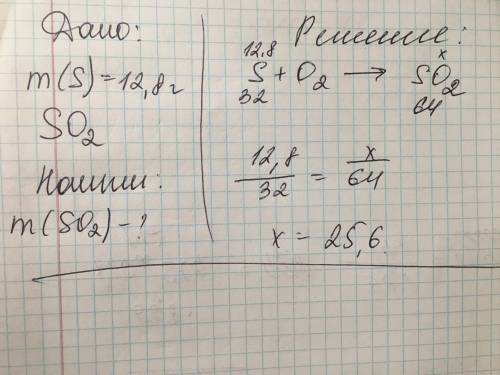 Дано:
m(S)=12,8г
SO₂
Найти:
m(SO₂)-?
Решение:
12,8 x
S + O₂ → SO₂
32 64
12,8/32 = x/64
x = 25,6